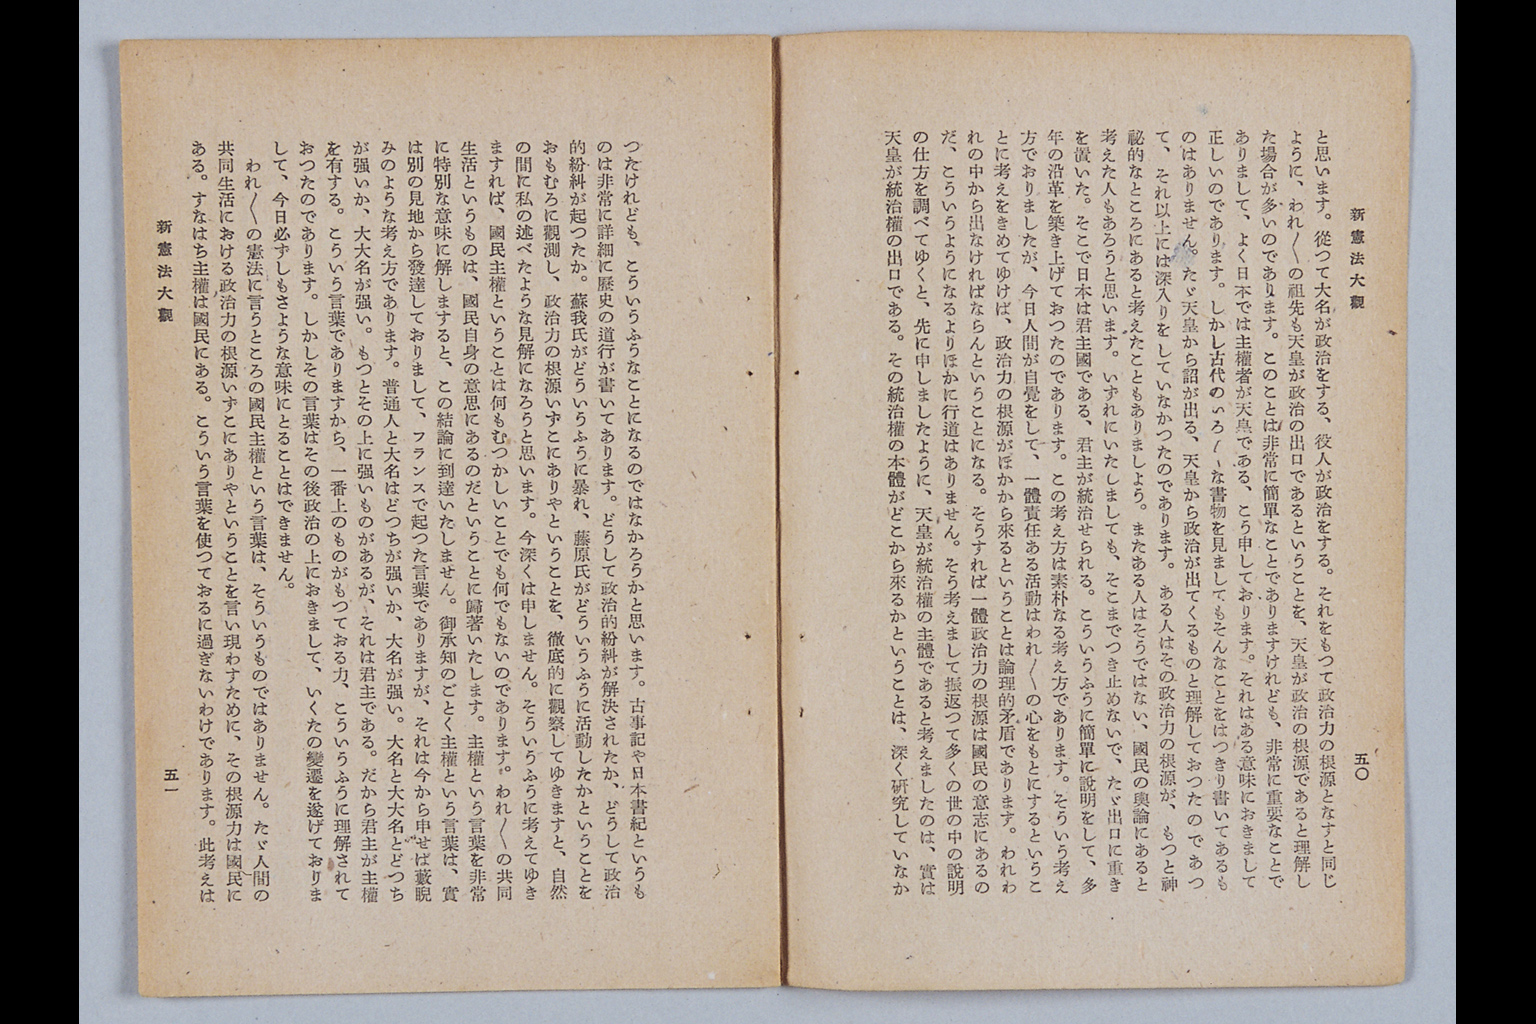 新憲法大觀
五〇
と思います。從つて大名が政治をする、役人が政治をする。それをもつて政治力の根源となすと同じ
ように、われ〱の祖先も天皇が政治の出口であるということを、天皇が政治の根源であると理解し
た場合が多いのであります。このことは非常に簡單なことでありますけれども、非常に重要なことで
ありまして、よく日本では主權者が天皇である、こう申しております。それはある意味におきまして
正しいのであります。しかし古代のいろ〱な書物を見ましてもそんなことをはつきり書いてあるも
のはありません。たゞ天皇から詔が出る、天皇から政治が出てくるものと理解しておつたのであつ
て、それ以上には深入りをしていなかつたのであります。ある人はその政治力の根源が、もつと神
祕的なところにあると考えたこともありましよう。またある人はそうではない、國民の輿論にあると
考えた人もあろうと思います。いずれにいたしましても、そこまでつき止めないで、たゞ出口に重き
を置いた。そこで日本は君主國である、君主が統治せられる。こういうふうに簡單に説明をして、多
年の沿革を築き上げておつたのであります。この考え方は素朴なる考え方であります。そういう考え
方でおりましたが、今日人間が自覺をして、一體責任ある活動はわれ〱の心をもとにするというこ
とに考えをきめてゆけば、政治力の根源がほかから來るということは論理的矛盾であります。われわ
れの中から出なければならんということになる。そうすれば一體政治力の根源は國民の意志にあるの
だ、こういうようになるよりほかに行道はありません。そう考えまして振返つて多くの世の中の説明
の仕方を調べてゆくと、先に申しましたように、天皇が統治權の主體であると考えましたのは、實は
天皇が統治權の出口である。その統治權の本體がどこから來るかということは、深く研究していなか
つたけれども、こういうふうなことになるのではなかろうかと思います。古事記や日本書紀というも
のは非常に詳細に歴史の道行が書いてあります。どうして政治的紛糾が解決されたか、どうして政治
的紛糾が起つたか。蘇我氏がどういうふうに暴れ、藤原氏がどういうふうに活動したかということを
おもむろに觀測し、政治力の根源いずこにありやということを、徹底的に觀察してゆきますと、自然
の間に私の述べたような見解になろうと思います。今深くは申しません。そういうふうに考えてゆき
ますれば、國民主權ということは何もむつかしいことでも何でもないのであります。われ〱の共同
生活というものは、國民自身の意思にあるのだということに歸著いたします。主權という言葉を非常
に特別な意味に解しますると、この結論に到達いたしません。御承知のごとく主權という言葉は、實
は別の見地から發達しておりまして、フランスで起つた言葉でありますが、それは今から申せば藪睨
みのような考え方であります。普通人と大名はどつちが强いか、大名が强い。大名と大大名とどつち
が强いか、大大名が强い。もつとその上に强いものがあるが、それは君主である。だから君主が主權
を有する。こういう言葉でありますから、一番上のものがもつておる力、こういうふうに理解されて
おつたのであります。しかしその言葉はその後政治の上におきまして、いくたの變遷を遂げておりま
して、今日必ずしもさような意味にとることはできません。
われ〱の憲法に言うところの國民主權という言葉は、そういうものではありません。たゞ人間の
共同生活における政治力の根源いずこにありやということを言い現わすために、その根源力は國民に
ある。すなはち主權は國民にある。こういう言葉を使つておるに過ぎないわけであります。此考えは
新憲法大觀
五一